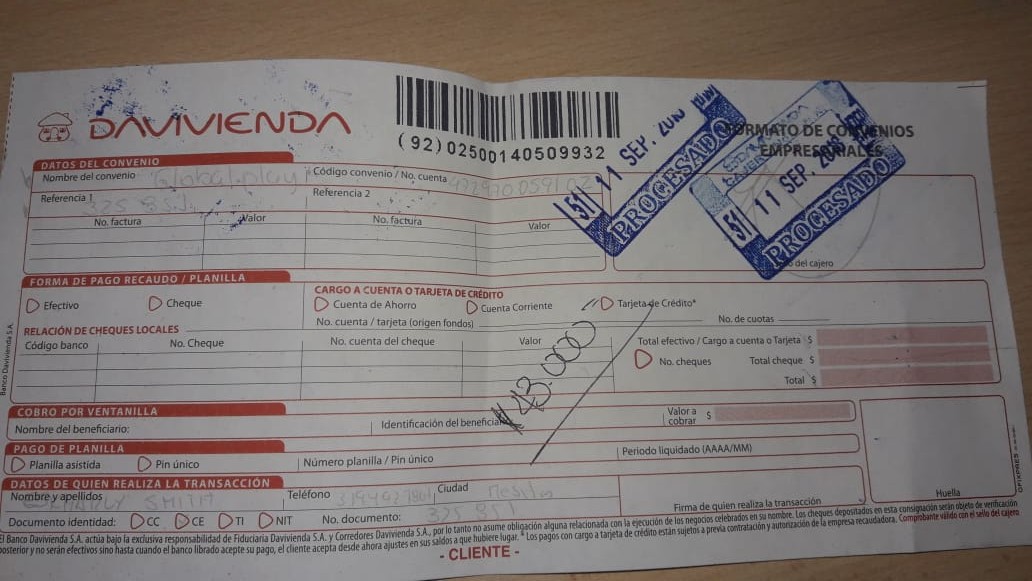 DAVIVIENDA
(92)02500140509932
FORMATO DE CONVENIOS
EMPRESARIALES
51 11 SEP.
PROCESADO
51 11 SEP.
PROCESADO
DATOS DEL CONVENIO
Nombre del convenio Global play
Código convenio / No. cuenta
Referencia 1
Referencia 2
No. factura Valor No. factura Valor
del cajero
FORMA DE PAGO RECAUDO / PLANILLA
Efectivo Cheque
CARGO A CUENTA O TARJETA DE CRÉDITO
Cuenta de Ahorro Cuenta Corriente Tarjeta de Crédito*
No. cuenta / tarjeta (origen fondos) No. de cuotas
RELACIÓN DE CHEQUES LOCALES
Código banco No. Cheque No. cuenta del cheque Valor
Total efectivo / Cargo a cuenta o Tarjeta $
No. cheques Total cheque $
Total $
$43.000
COBRO POR VENTANILLA
Nombre del beneficiario: Identificación del beneficiar
Valor a cobrar $
PAGO DE PLANILLA
Planilla asistida Pin único Número planilla / Pin único Periodo liquidado (AAAA/MM)
DATOS DE QUIEN REALIZA LA TRANSACCIÓN
Nombre y apellidos SMITH Teléfono Ciudad
Documento identidad: CC CE TI NIT No. documento: 325 851
Firma de quien realiza la transacción
Huella
Banco Davivienda S.A.
El Banco Davivienda S.A. actúa bajo la exclusiva responsabilidad de Fiduciaria Davivienda S.A. y Corredores Davivienda S.A., por lo tanto no asume obligación alguna relacionada con la ejecución de los negocios celebrados en su nombre. Los cheques depositados en esta consignación serán objeto de verificación
posterior y no serán efectivos sino hasta cuando el banco librado acepte su pago, el cliente acepta desde ahora ajustes en sus saldos a que hubiere lugar. * Los pagos con cargo a tarjeta de crédito están sujetos a previa contratación y autorización de la empresa recaudadora. Comprobante válido con el sello del cajero
- CLIENTE -